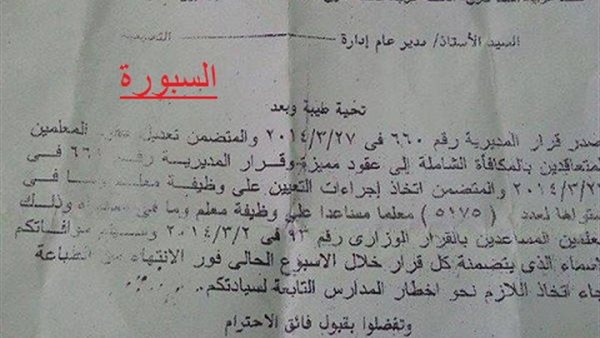 السيد الأستاذ/ مدير عام إدارة التعليمية
السبورة
تحية طيبة وبعد
صدر قرار المديرية رقم ٦٦٠ فى ٢٠١٤/٣/٢٧ والمتضمن تعديل المعلمين
المتعاقدين بالمكافأة الشاملة إلى عقود مميزة وقرار المديرية رقم ٦٦١ فى
٢٠١٤/٣/٢٧ والمتضمن اتخاذ إجراءات التعيين على وظيفة معلم وما فى
لعدد (٥١٧٥) معلما مساعدا على وظيفة معلم وما فى وذلك
للمعلمين المساعدين بالقرار الوزارى رقم ٩٣ فى ٢٠١٤/٣/٢ موافاتكم
الذى يتضمنة كل قرار خلال الاسبوع الحالى فور الانتهاء من الطباعة
اتخاذ اللازم نحو اخطار المدارس التابعة لسيادتكم..
وتفضلوا بقبول فائق الاحترام